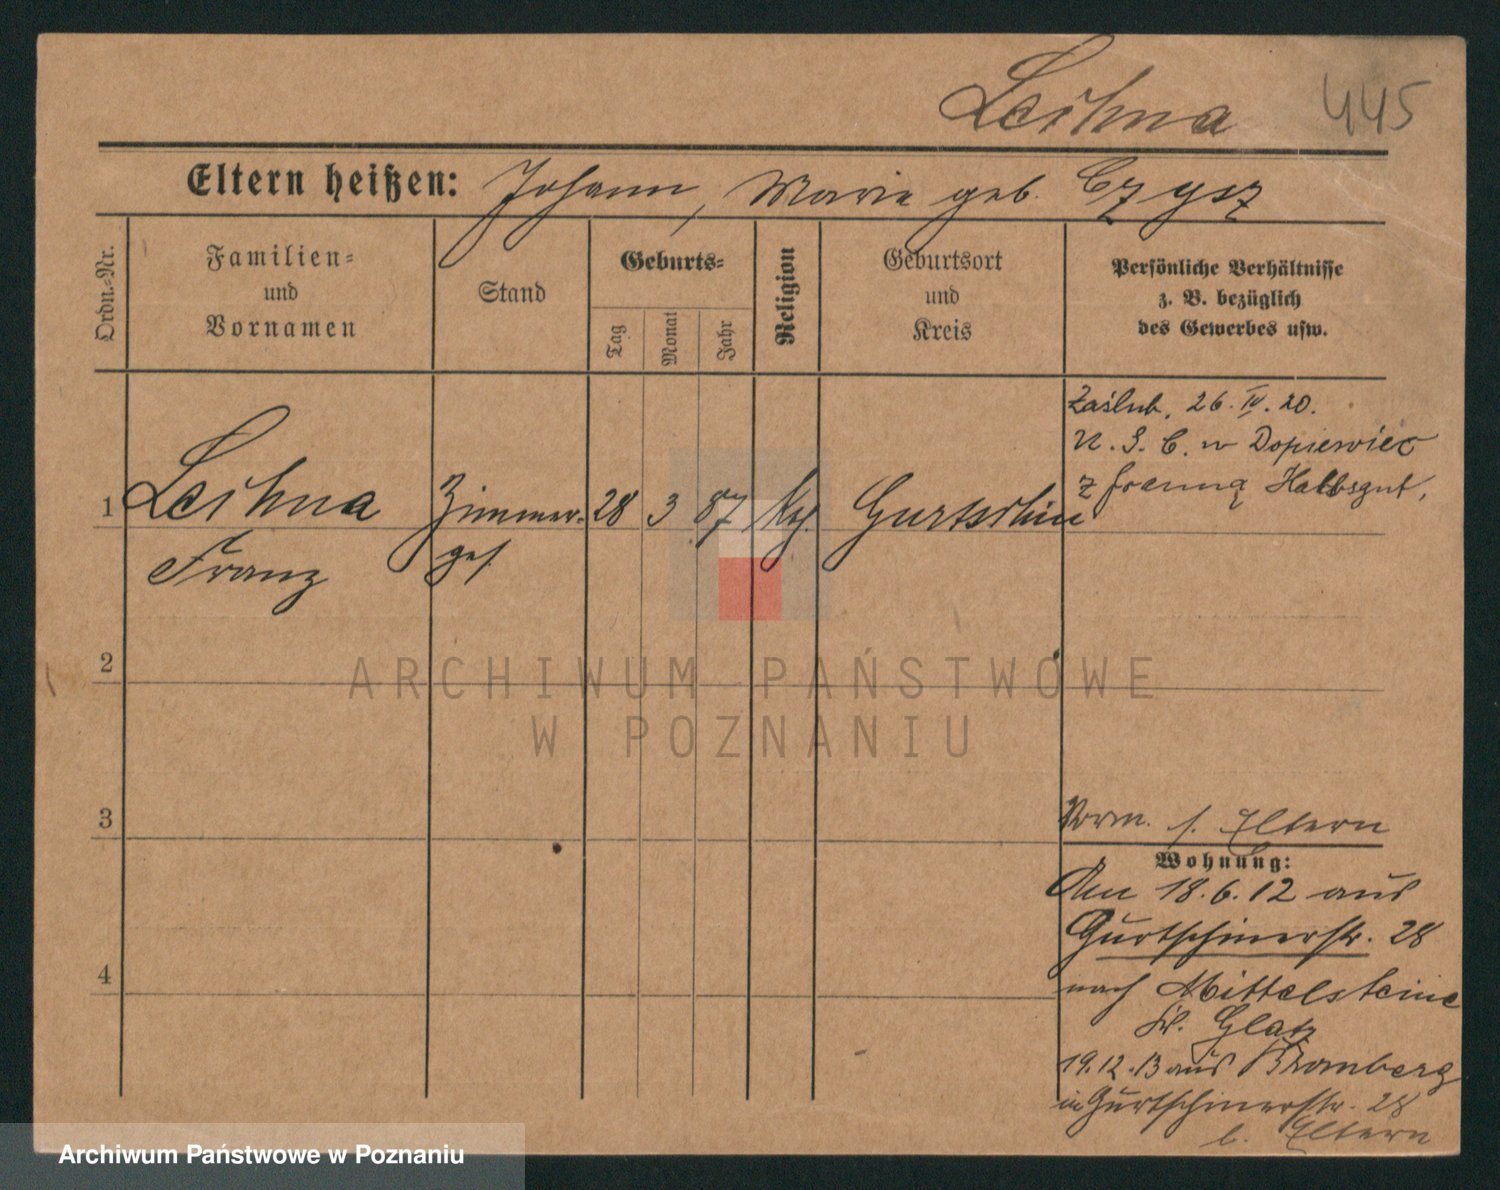 Leihna 445
Eltern heißen: Johann, Marie geb. Czysz
Ordn.-Nr.
Familien-
und
Vornamen
Stand
Geburts-
Tag
Monat
Jahr
Religion
Geburtsort
und
Kreis
Persönliche Verhältnisse
z. B. bezüglich
des Gewerbes usw.
Zaślub. 26. IV. 20.
U. S. C. w Dopiewiec
z Joanną Halbsgut.
1 Leihna Zimmer- 28 3 87 Gurtschin
Franz ges.
2
3
4
Vorm. s. Eltern
Wohnung:
Am 18.6.12 aus
Gurtschinerstr. 28
nach Mittelsteine
Glatz
19.12.13 aus Bromberg
in Gurtschinerstr. 28
b. Eltern
ARCHIWUM PAŃSTWOWE
W POZNANIU
Archiwum Państwowe w Poznaniu